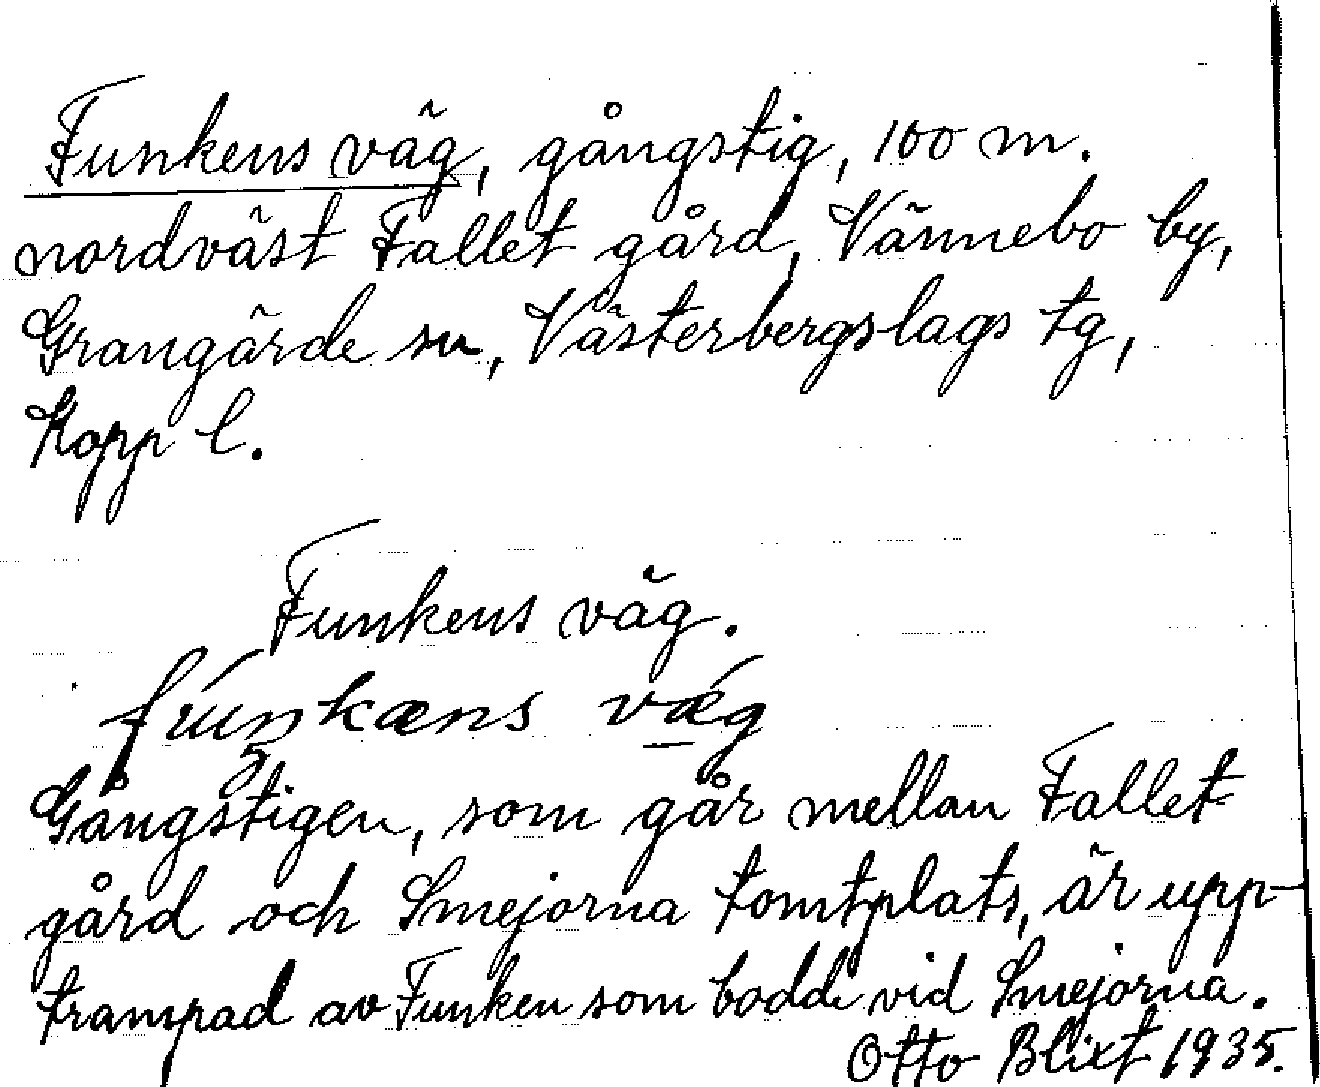 Funkens väg, gångstig, 100 m.
nordväst Fallet gård, Vännebo by,
Grangärde sn, Västerbergslags tg,
Kopp l.
Funkens väg.
fúnkæns væg
Gångstigen, som går mellan Fallet
gård och Smejorna tomtplats, är upp-
trampad av Funken som bodde vid Smejorna.
Otto Blixt 1935.